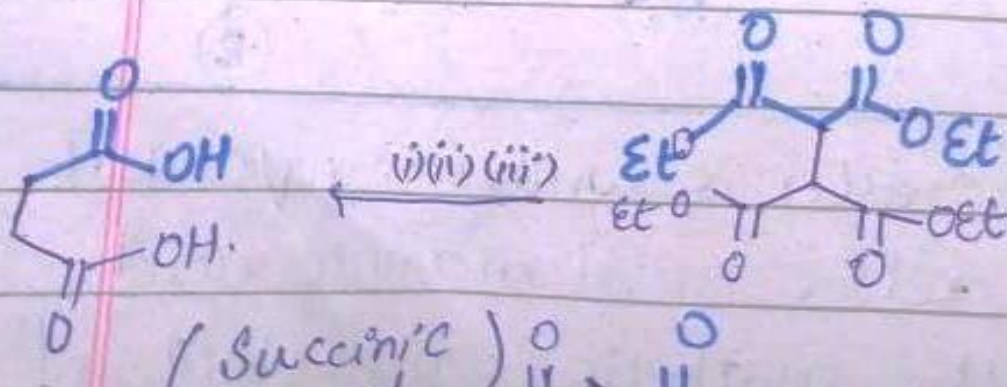 O O
O
OH (i)(ii)(iii) EtO OEt
Et O OEt
OH. O O
O
(Succinic) O O